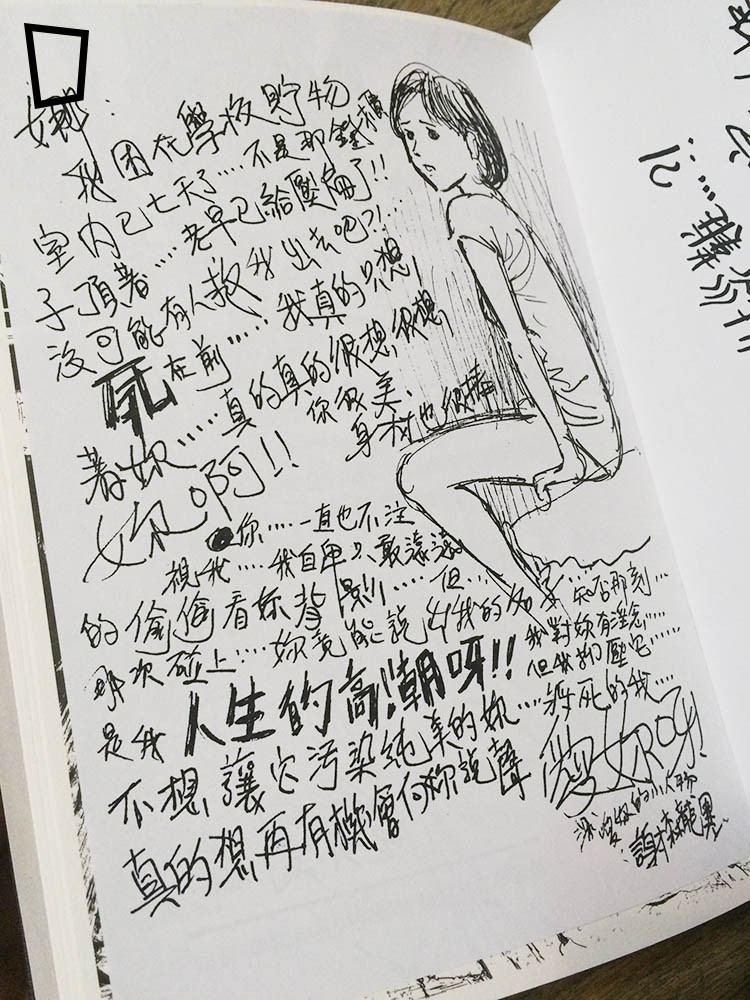 娜:
我困在學校貯物
室內已七天了‥‥不是那鐵櫃
子頂著‥‥老早已給壓編了!!
沒可能有人救我出去吧?!
死在前‥‥我真的只想
著妳‥‥真的真的很想很想
你很美、
身材也很棒
妳啊!!
你‥‥一直也不注
視我‥‥我自卑只敢遠遠
的偷偷看妳‥‥但‥‥
那次碰上‥‥妳竟能說出我的名字‥‥知否那刻‥‥
是我人生的高潮呀!!
我對妳有淫念‥‥
但我抑壓它‥‥
不想讓它污染純真的妳‥‥將死的我‥‥
真的想再有機會向妳說聲
愛妳呀
深愛妳的小人物